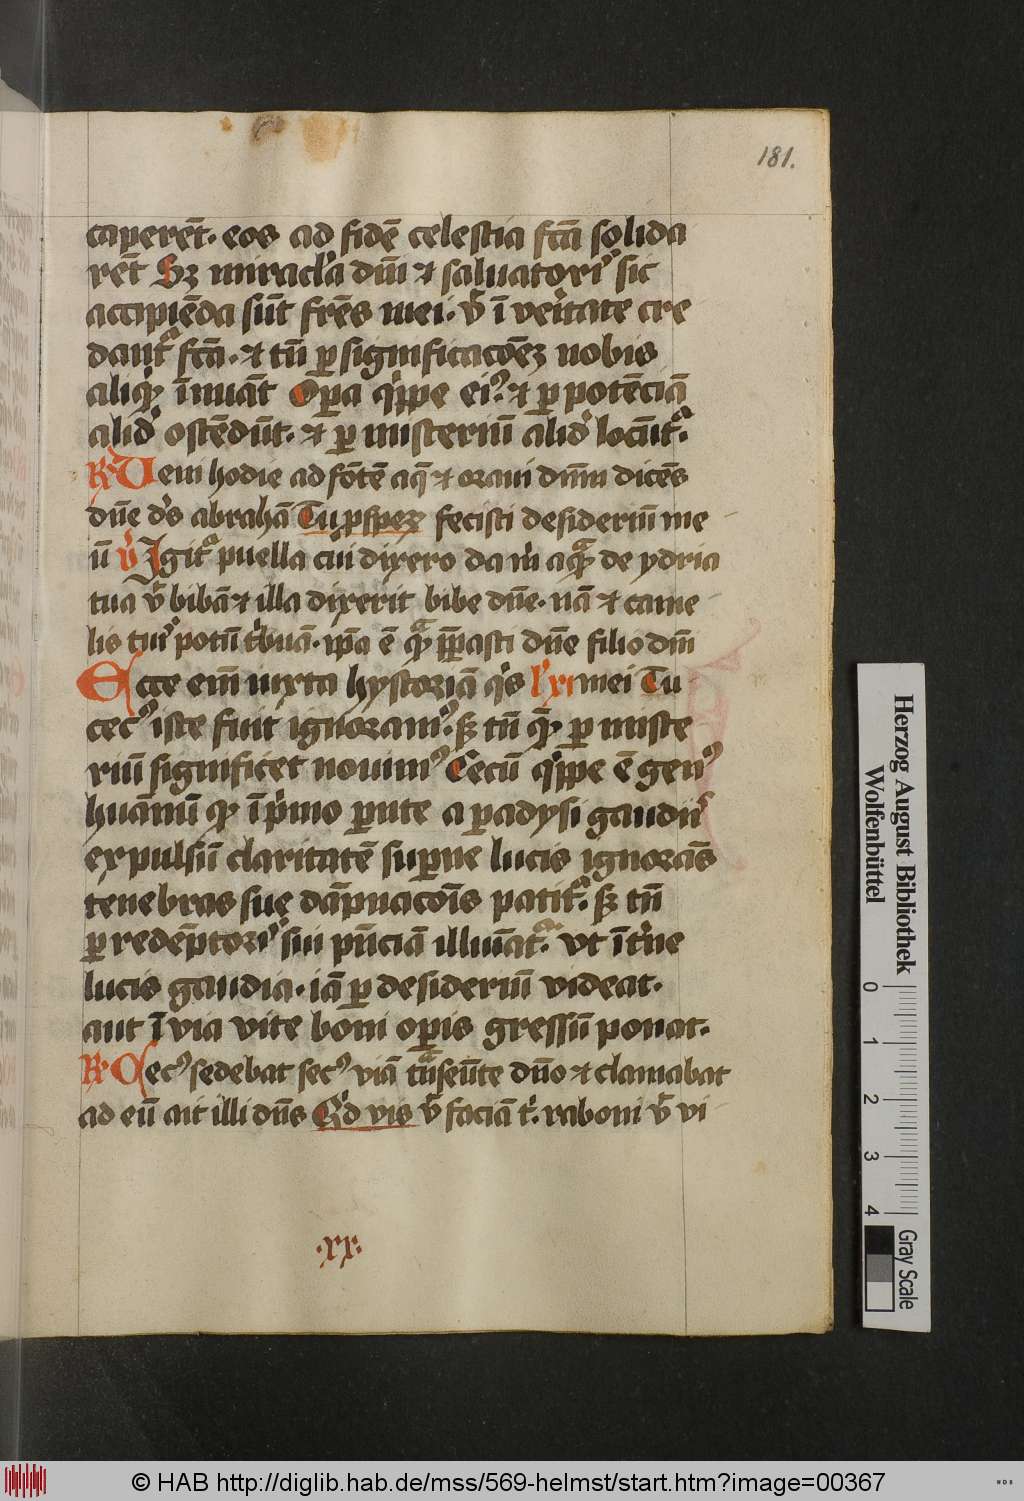 181.
caperēt. eos ad fidē celestia fc̄a solida
rēt Sz miracl'a dm̄i ⁊ saluatoris sic
accipiēda sūt fr̄es mei. vt̄ ī veritate cre
dant᷑ fc̄a. ⁊ tn̄ ꝑ significacōez nobis
aliqͥd īnuāt Oꝑa qͥppe eiꝰ ⁊ ꝑ potēciā
aliđ ostēdūt. ⁊ ꝑ misteriū aliđ locūt᷑.
R̷ Veni hodie ad fōtē aq̄ ⁊ oraui dn̄m dicēs
dn̄e ds̄ abrahā Tu ꝓsꝑe fecisti desideriū me
ū v̄ Igit᷑ puella cui dixero da m̄ aquā de ydria
tua vt̄ bibā ⁊ illa dixerit bibe dn̄e. nā ⁊ came
lis tuis potū tͥbuā. ip̄a ē quā p̄ꝑasti dn̄e filio dm̄i
Ecce em̄ iuxta hystoriā qͥs l'xi mei Tu
cecꝰ iste fuit ignoramꝰ. sꝫ tn̄ quē ꝑ miste
riū significet nouimꝰ Cecū qͥppe ē genꝰ
huāmū qꝫ ī pͥmo ꝑnte a ꝑadysi gaudiis
expulsū claritatē suꝑne lucis ignorās
tenebras sue dāpnacōis patit᷑. sꝫ tn̄
ꝑ redēptoris sui pn̄ciā illuīat᷑. vt īt̄ne
lucis gaudia. iā ꝑ desideriū videat.
aut ī via vite boni oꝑis gressū ponat.
R̷ Cecꝰ sedebat secꝰ viā tn̄seūte dn̄o ⁊ clamabat
ad eū ait illi dn̄s Qͥd vis vt̄ faciā tͥ. raboni vt̄ vi
.xx.
Herzog August Bibliothek
Wolfenbüttel
0 1 2 3 4
Gray Scale
© HAB http://diglib.hab.de/mss/569-helmst/start.htm?image=00367